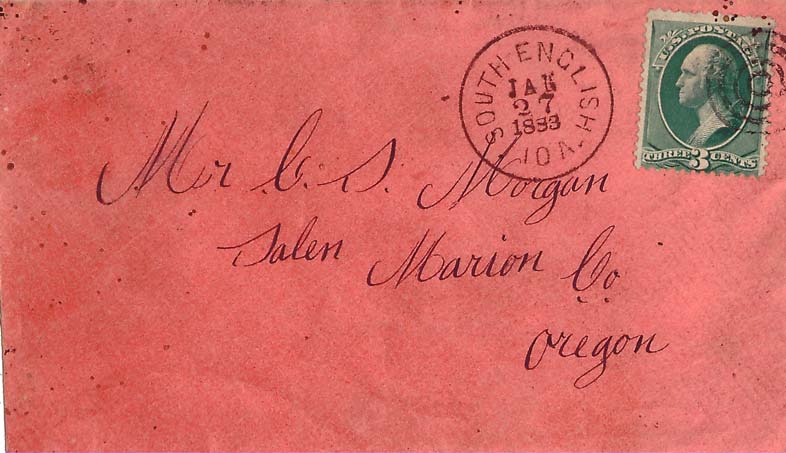 SOUTH ENGLISH IOA.
JAN
27
1883
U.S. POSTAGE
THREE 3 CENTS
Mr C. S. Morgan
Salen Marion Co
Oregon